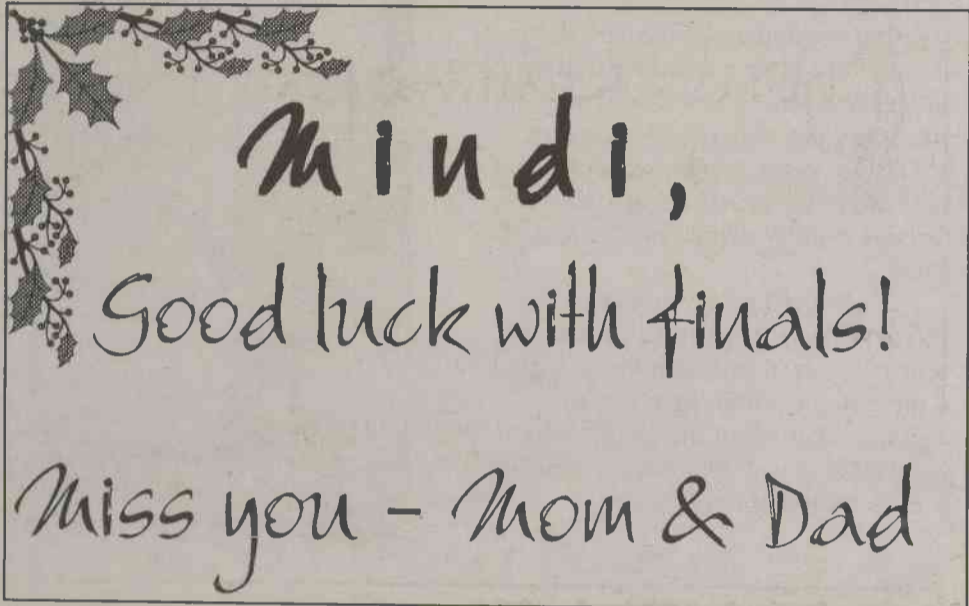 Mindi,
Good luck with finals!
Miss you - Mom & Dad